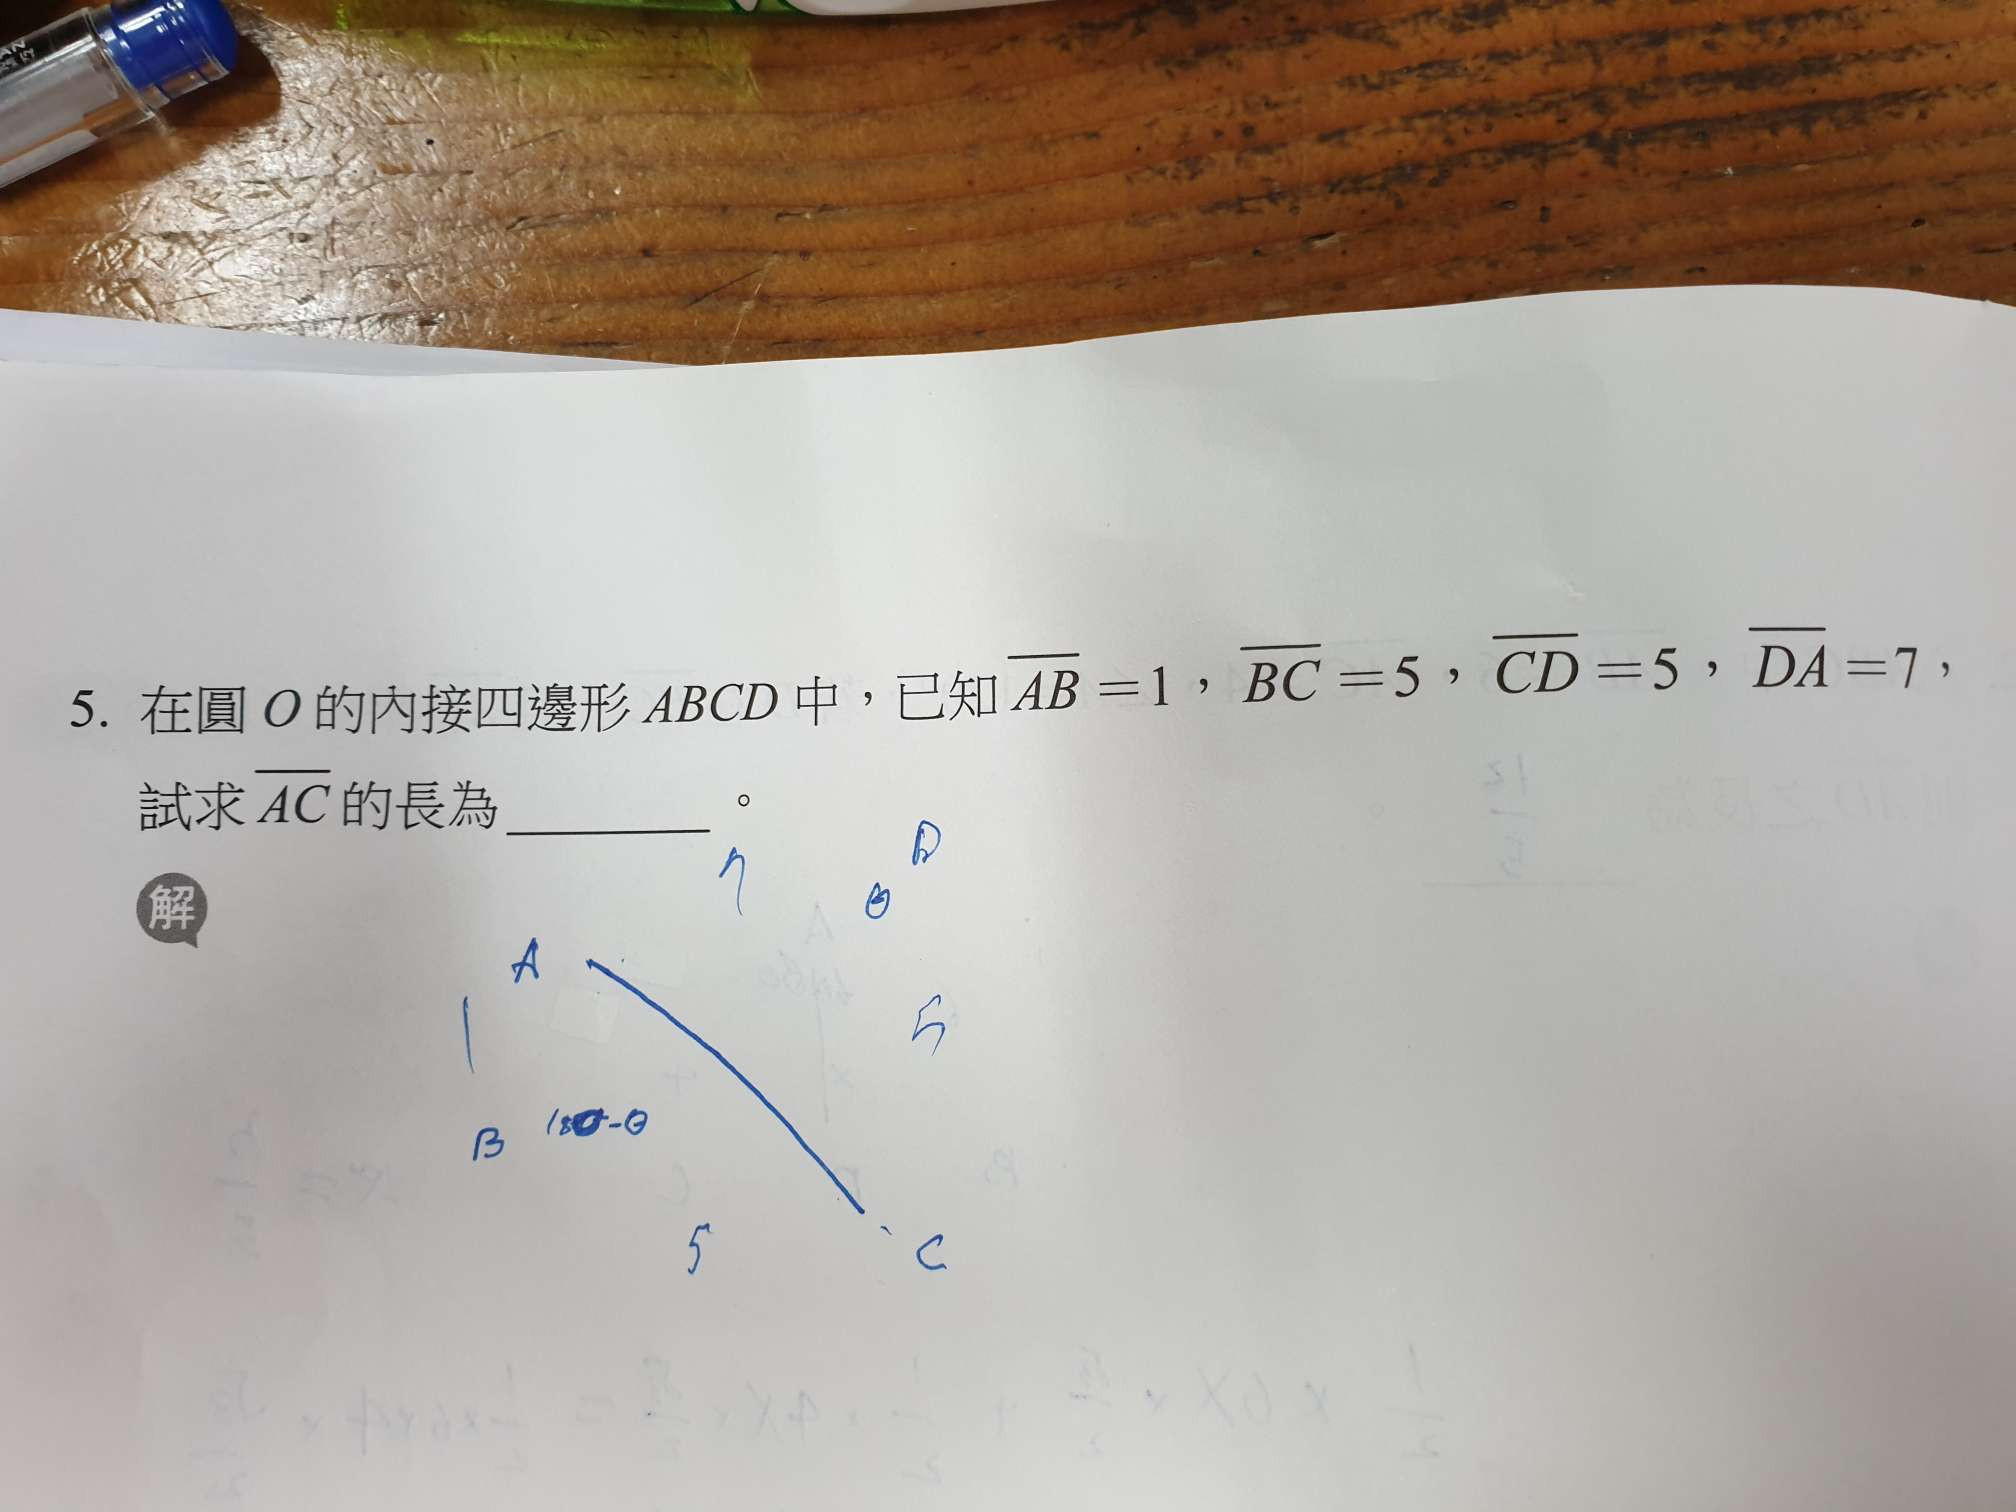 5. 在圓 O 的內接四邊形 ABCD 中，已知 AB=1，BC=5，CD=5，DA=7，
試求 AC 的長為________。
解
7 D
θ
A
1 5
B 180-θ
5 C